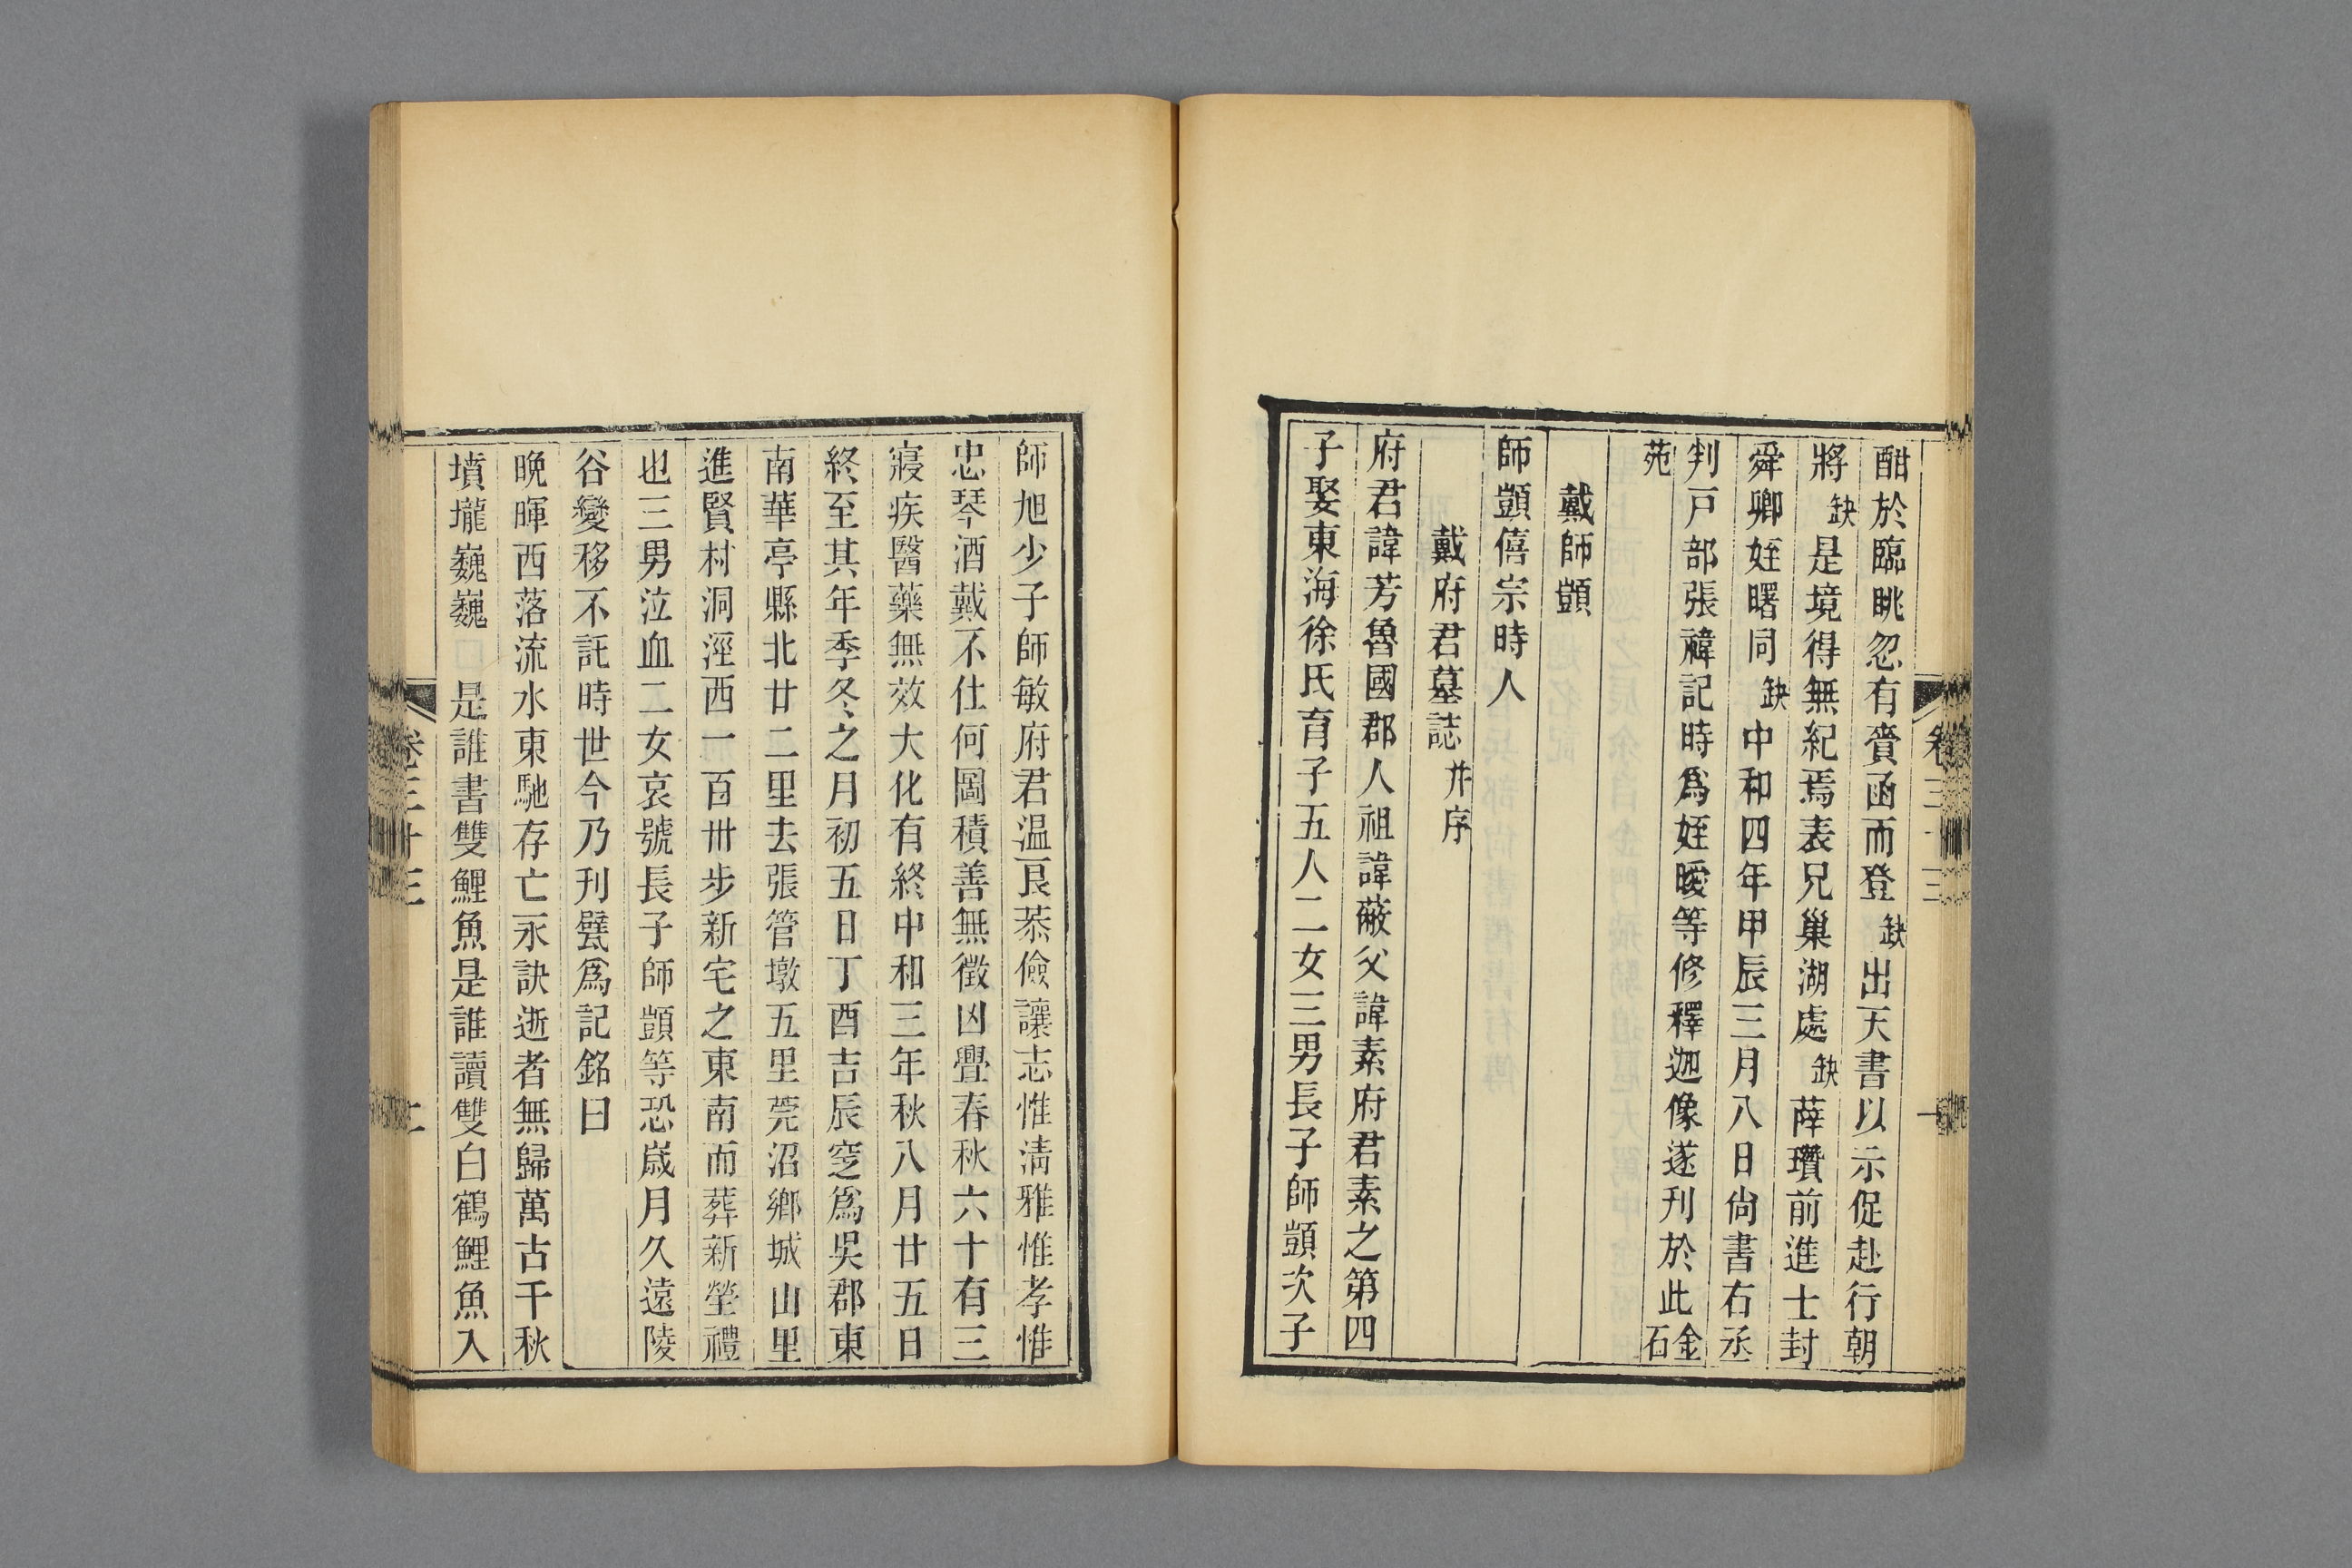 酣於臨眺忽有賫函而登缺出天書以示促赴行朝
將缺是境得無紀焉表兄巢湖處缺薛瓚前進士封
舜卿姪曙同缺中和四年甲辰三月八日尙書右丞
判戸部張禕記時爲姪曖等修釋迦像遂刋於此金石
苑
戴師顗
師顗僖宗時人
戴府君墓誌并序
府君諱芳魯國郡人祖諱蔽父諱素府君素之第四
子娶東海徐氏育子五人二女三男長子師顗次子
師旭少子師敏府君温良恭儉讓志惟清雅惟孝惟
忠琴酒戴不仕何圖積善無徵凶疊春秋六十有三
寢疾醫藥無效大化有終中和三年秋八月廿五日
終至其年季冬之月初五日丁酉吉辰窆爲吳郡東
南華亭縣北廿二里去張管墩五里莞沼鄉城山里
進賢村洞涇西一百卅步新宅之東南而葬新塋禮
也三男泣血二女哀號長子師顗等恐歲月久遠陵
谷變移不託時世今乃刋甓爲記銘曰
晚暉西落流水東馳存亡永訣逝者無歸萬古千秋
墳壠巍巍□是誰書雙鯉魚是誰讀雙白鶴鯉魚入
卷三十三